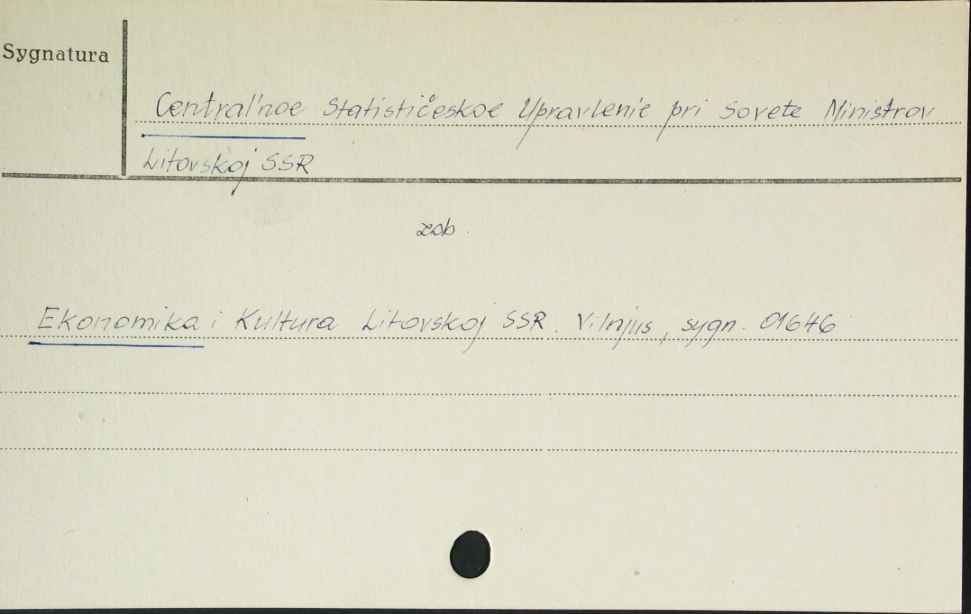 Sygnatura
Central'noe Statističeskoe Upravlenie pri Sovete Ministrov
Litovskoj SSR
zob.
Ekonomika i Kultura Litovskoj SSR. Vilnjus, sygn. 01646